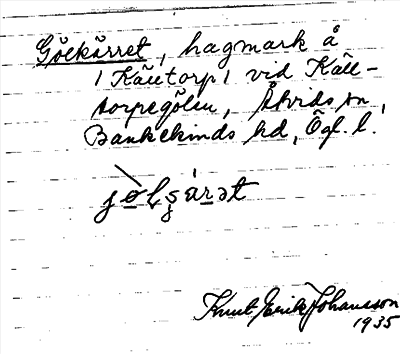 Gölkärret, hagmark å
1 Källtorp 1 vid Käll-
torpegölen, Åtvids sn,
Bankekinds hd, Ögl. l.
Knut Erik Johansson
1935